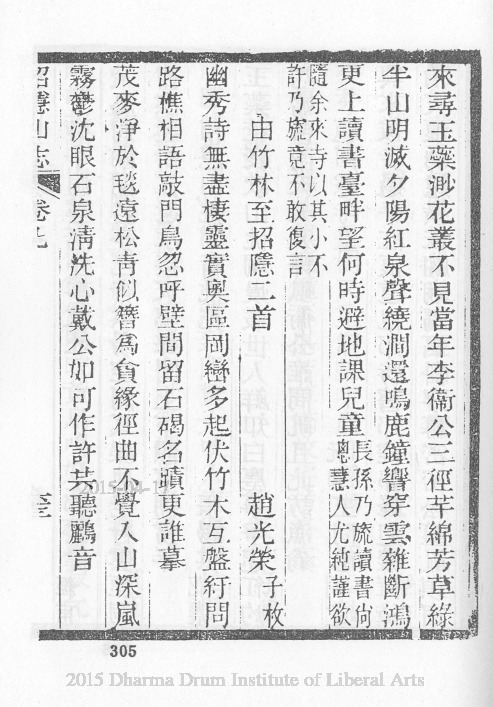 來尋玉蘂渺花叢不見當年李衞公三徑芊綿芳草綠
半山明滅夕陽紅泉聲繞澗還鳴鹿鐘響穿雲雜斷鴻
更上讀書臺畔望何時避地課兒童長孫乃旒讀書尙
聰慧人尤純謹欲
隨余來寺以其小不
許乃旒竟不敢復言
由竹林至招隱二首 趙光榮子枚
幽秀詩無盡棲靈實奧區岡巒多起伏竹木互盤紆問
路樵相語敲門鳥忽呼壁間留石碣名蹟更誰摹
茂麥淨於毯遠松靑似簪爲貪緣徑曲不覺入山深嵐
霧鬱沈眼石泉淸洗心戴公如可作許共聽鸝音
招隱山志 卷九
305
2015 Dharma Drum Institute of Liberal Arts